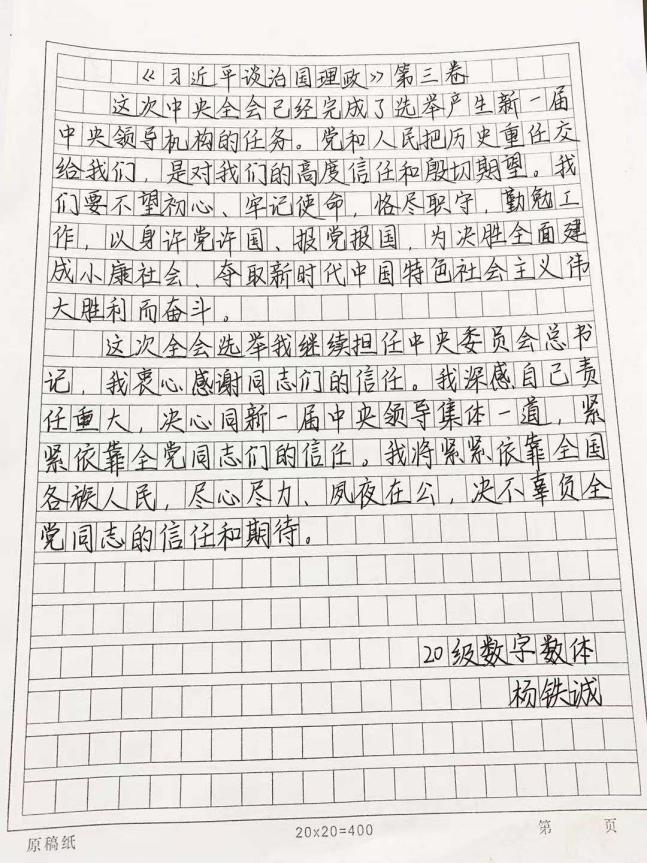 《习近平谈治国理政》第三卷
这次中央全会已经完成了选举产生新一届
中央领导机构的任务。党和人民把历史重任交
给我们，是对我们的高度信任和殷切期望。我
们要不望初心、牢记使命，恪尽职守，勤勉工
作，以身许党许国、报党报国，为决胜全面建
成小康社会、夺取新时代中国特色社会主义伟
大胜利而奋斗。
这次全会选举我继续担任中央委员会总书
记，我衷心感谢同志们的信任。我深感自己责
任重大，决心同新一届中央领导集体一道，紧
紧依靠全党同志们的信任。我将紧紧依靠全国
各族人民，尽心尽力、夙夜在公，决不辜负全
党同志的信任和期待。
20级数字数体
杨铁诚
原稿纸
20×20=400
第 页